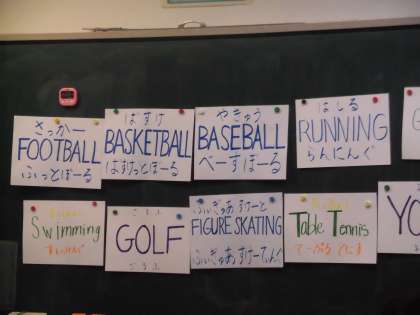 さっかー
FOOTBALL
ふっとぼーる
ばすけ
BASKETBALL
ばすけっとぼーる
やきゅう
BASEBALL
べーすぼーる
はしる
RUNNING
らんにんぐ
Swimming
すいみんぐ
ごるふ
GOLF
ごるふ
ふぃぎゅあすけーと
FIGURE SKATING
ふぃぎゅあすけーてぃんぐ
Table Tennis
てーぶるてにす
YO